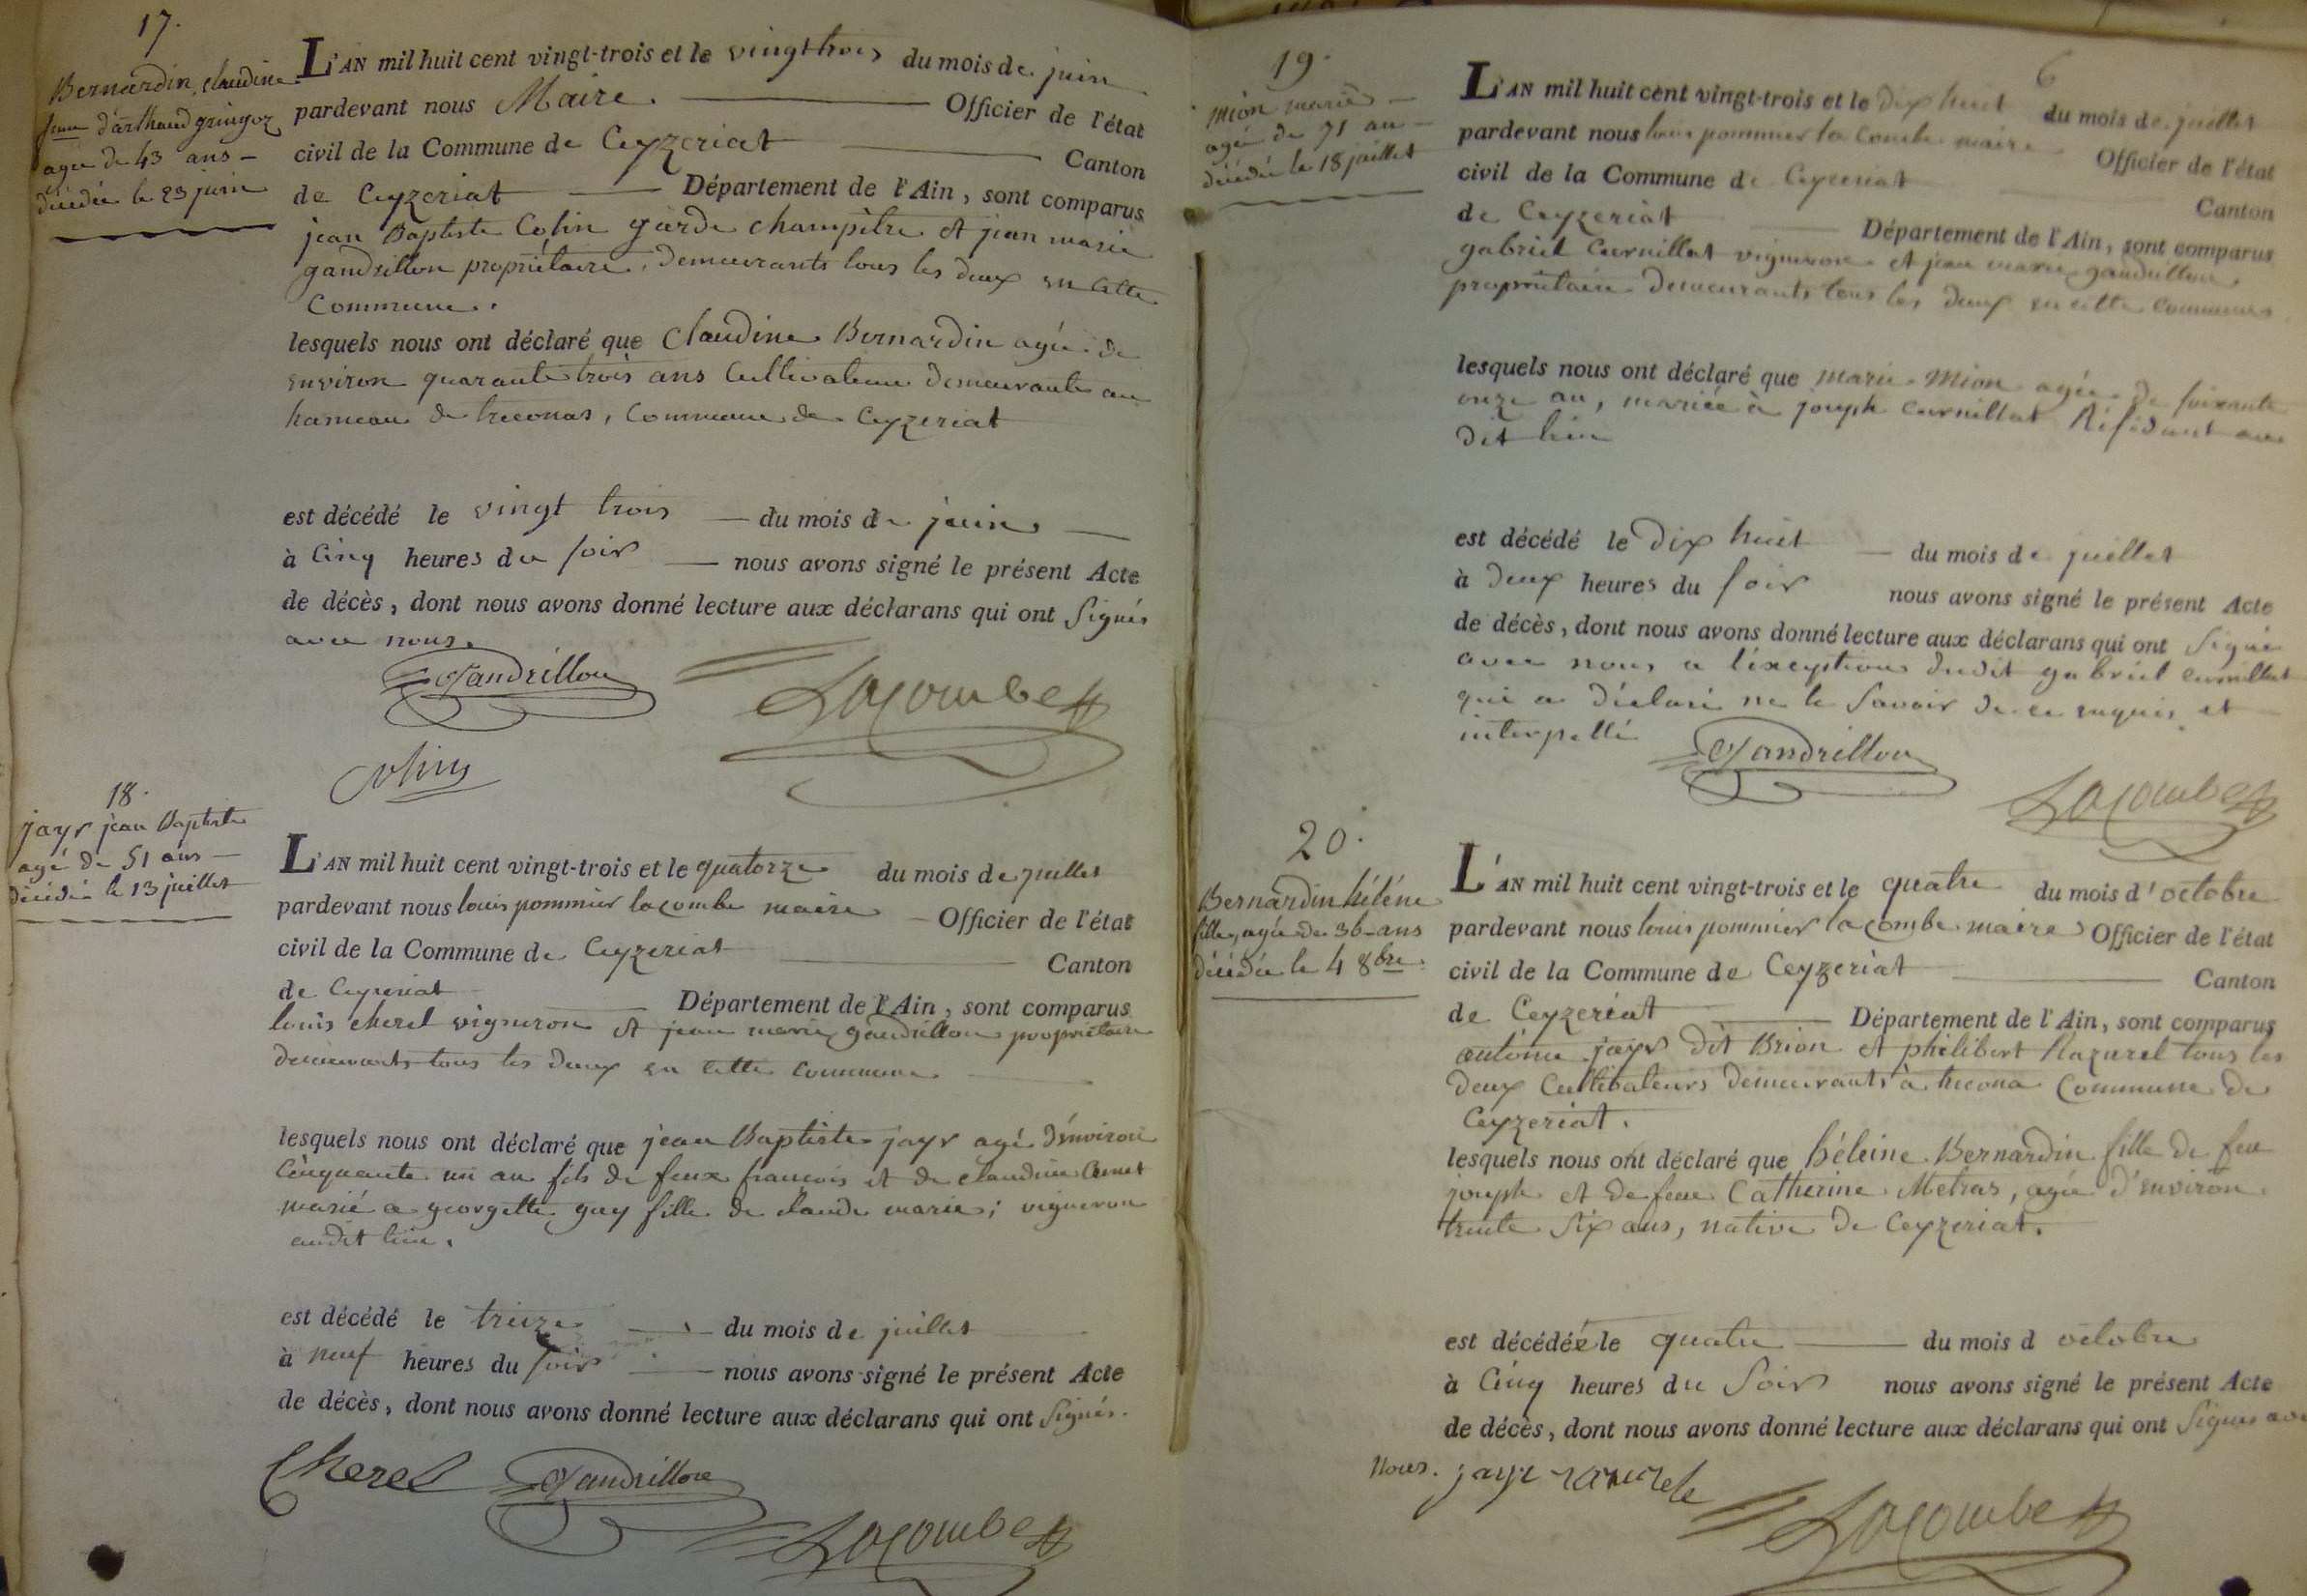 17.
Bernardin, claudine
femme d'arthaud gringoz
agée de 43 ans -
décédée le 23 juin
L'AN mil huit cent vingt-trois et le vingt trois du mois de juin
pardevant nous Maire. Officier de l'état
civil de la Commune de Ceyzeriat Canton
de Ceyzeriat Département de l'Ain, sont comparus
jean Baptiste Colin garde champêtre et jean marie
gandrillon propriétaire, demeurants tous les deux en cette
Commune.
lesquels nous ont déclaré que Claudine Bernardin agée de
environ quarante trois ans Cultivateur demeurante au
hameau de treconas, Commune de Ceyzeriat
est décédé le vingt trois du mois de juin
à Cinq heures du soir nous avons signé le présent Acte
de décès, dont nous avons donné lecture aux déclarans qui ont signés
avec nous.
Gandrillon
Lacombe
Colin
18.
jayr jean Baptiste
agé de 51 ans -
décédé le 13 juillet
L'AN mil huit cent vingt-trois et le quatorze du mois de juillet
pardevant nous louis pommier lacombe maire Officier de l'état
civil de la Commune de Ceyzeriat Canton
de Ceyzeriat Département de l'Ain, sont comparus
louis cherel vigneron et jean marie gandrillon propriétaire
demeurants tous les deux en cette commune
lesquels nous ont déclaré que jean Baptiste jayr agé d'environ
Cinquante un an fils de feux françois et de claudine
marié a georgette guy fille de claude marie; vigneron
audit lieu.
est décédé le treize du mois de juillet
à neuf heures du soir nous avons signé le présent Acte
de décès, dont nous avons donné lecture aux déclarans qui ont signés.
Cherel Gandrillon
Lacombe
6
19.
Mion marie -
agée de 71 an -
décédée le 18 juillet
L'AN mil huit cent vingt-trois et le dix huit du mois de juillet
pardevant nous louis pommier la Combe maire Officier de l'état
civil de la Commune de Ceyzeriat Canton
de Ceyzeriat Département de l'Ain, sont comparus
gabriel Curnillat vigneron et jean marie gandrillon
propriétaire demeurants tous les deux en cette commune
lesquels nous ont déclaré que marie Mion agée de soixante
onze an, mariée à joseph Curnillat Résidant au
dit lieu
est décédé le dix huit du mois de juillet
à deux heures du soir nous avons signé le présent Acte
de décès, dont nous avons donné lecture aux déclarans qui ont signé
avec nous a l'exception dudit gabriel Curnillat
qui a déclaré ne le savoir de ce enquis et
interpellé
Gandrillon
Lacombe
20.
Bernardin héléne
fille, agée de 36 ans
décédée le 4 8bre.
L'AN mil huit cent vingt-trois et le quatre du mois d'octobre
pardevant nous louis pommier lacombe maire Officier de l'état
civil de la Commune de Ceyzeriat Canton
de Ceyzeriat Département de l'Ain, sont comparus
antoine jayr dit Brion et philibert Razurel tous les
deux Cultivateurs demeurants à trecona Commune de
Ceyzeriat.
lesquels nous ont déclaré que héleine Bernardin fille de feu
joseph et de feue Catherine Metras, agée d'environ
trente six ans, native de Ceyzeriat.
est décédée le quatre du mois d octobre
à Cinq heures du Soir nous avons signé le présent Acte
de décès, dont nous avons donné lecture aux déclarans qui ont Signés avec
nous. jayr razurele
Lacombe